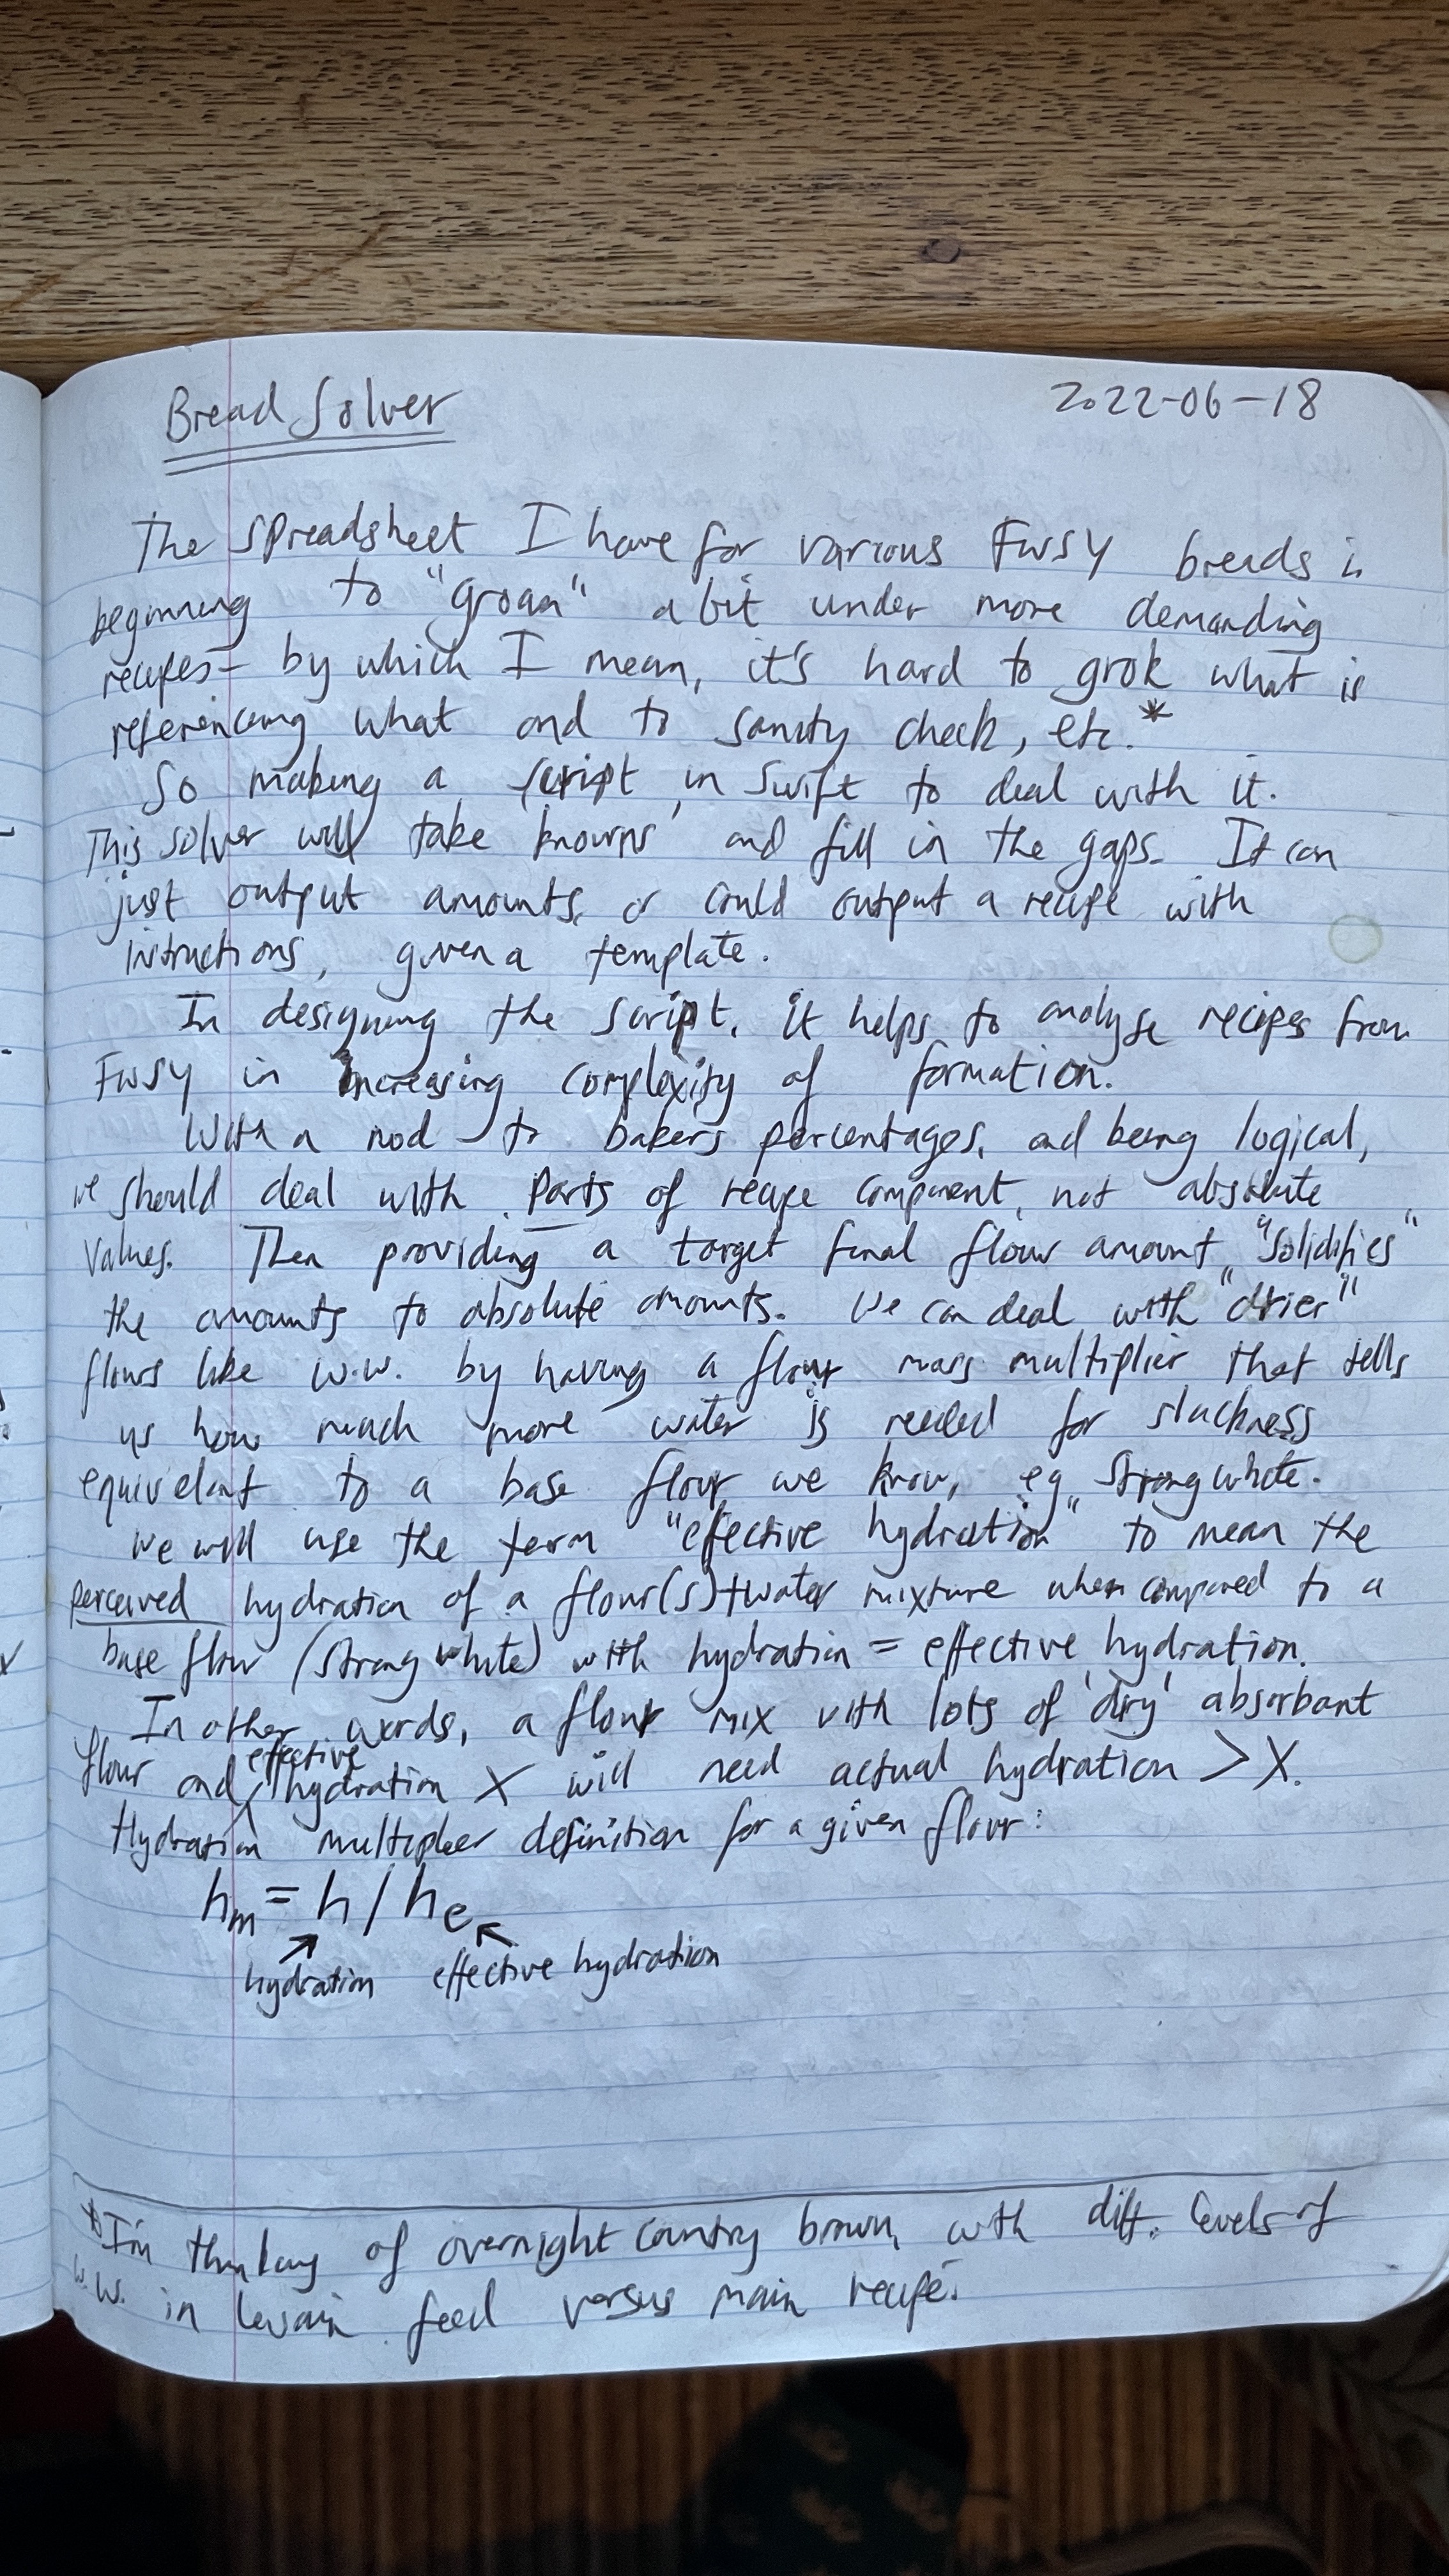 Bread Solver
2022-06-18
The spreadsheet I have for various FWSY breads is
beginning to "groan" a bit under more demanding
recipes - by which I mean, it's hard to grok what is
referencing what and to sanity check, etc.*
So making a script in Swift to deal with it.
This solver will take knowns and fill in the gaps. It can
just output amounts, or could output a recipe with
instructions, given a template.
In designing the script, it helps to analyse recipes from
FWSY in increasing complexity of formation.
With a nod to bakers percentages, and being logical,
we should deal with parts of recipe component, not absolute
values. Then providing a target final flour amount "solidifies"
the amounts to absolute amounts. We can deal with "drier"
flours like w.w. by having a flour mass multiplier that tells
us how much more water is needed for slackness
equivelant to a base flour we know, eg strong white.
We will use the term "effective hydration" to mean the
perceived hydration of a flour(s)+water mixture when compared to a
base flour (strong white) with hydration = effective hydration.
In other words, a flour mix with lots of 'dry' absorbant
flour and effective hydration X will need actual hydration > X.
Hydration multiplier definition for a given flour:
hm = h / he
hydration effective hydration
*I'm thinking of overnight country brown, with diff. levels of
w.w. in levain feed versus main recipe.